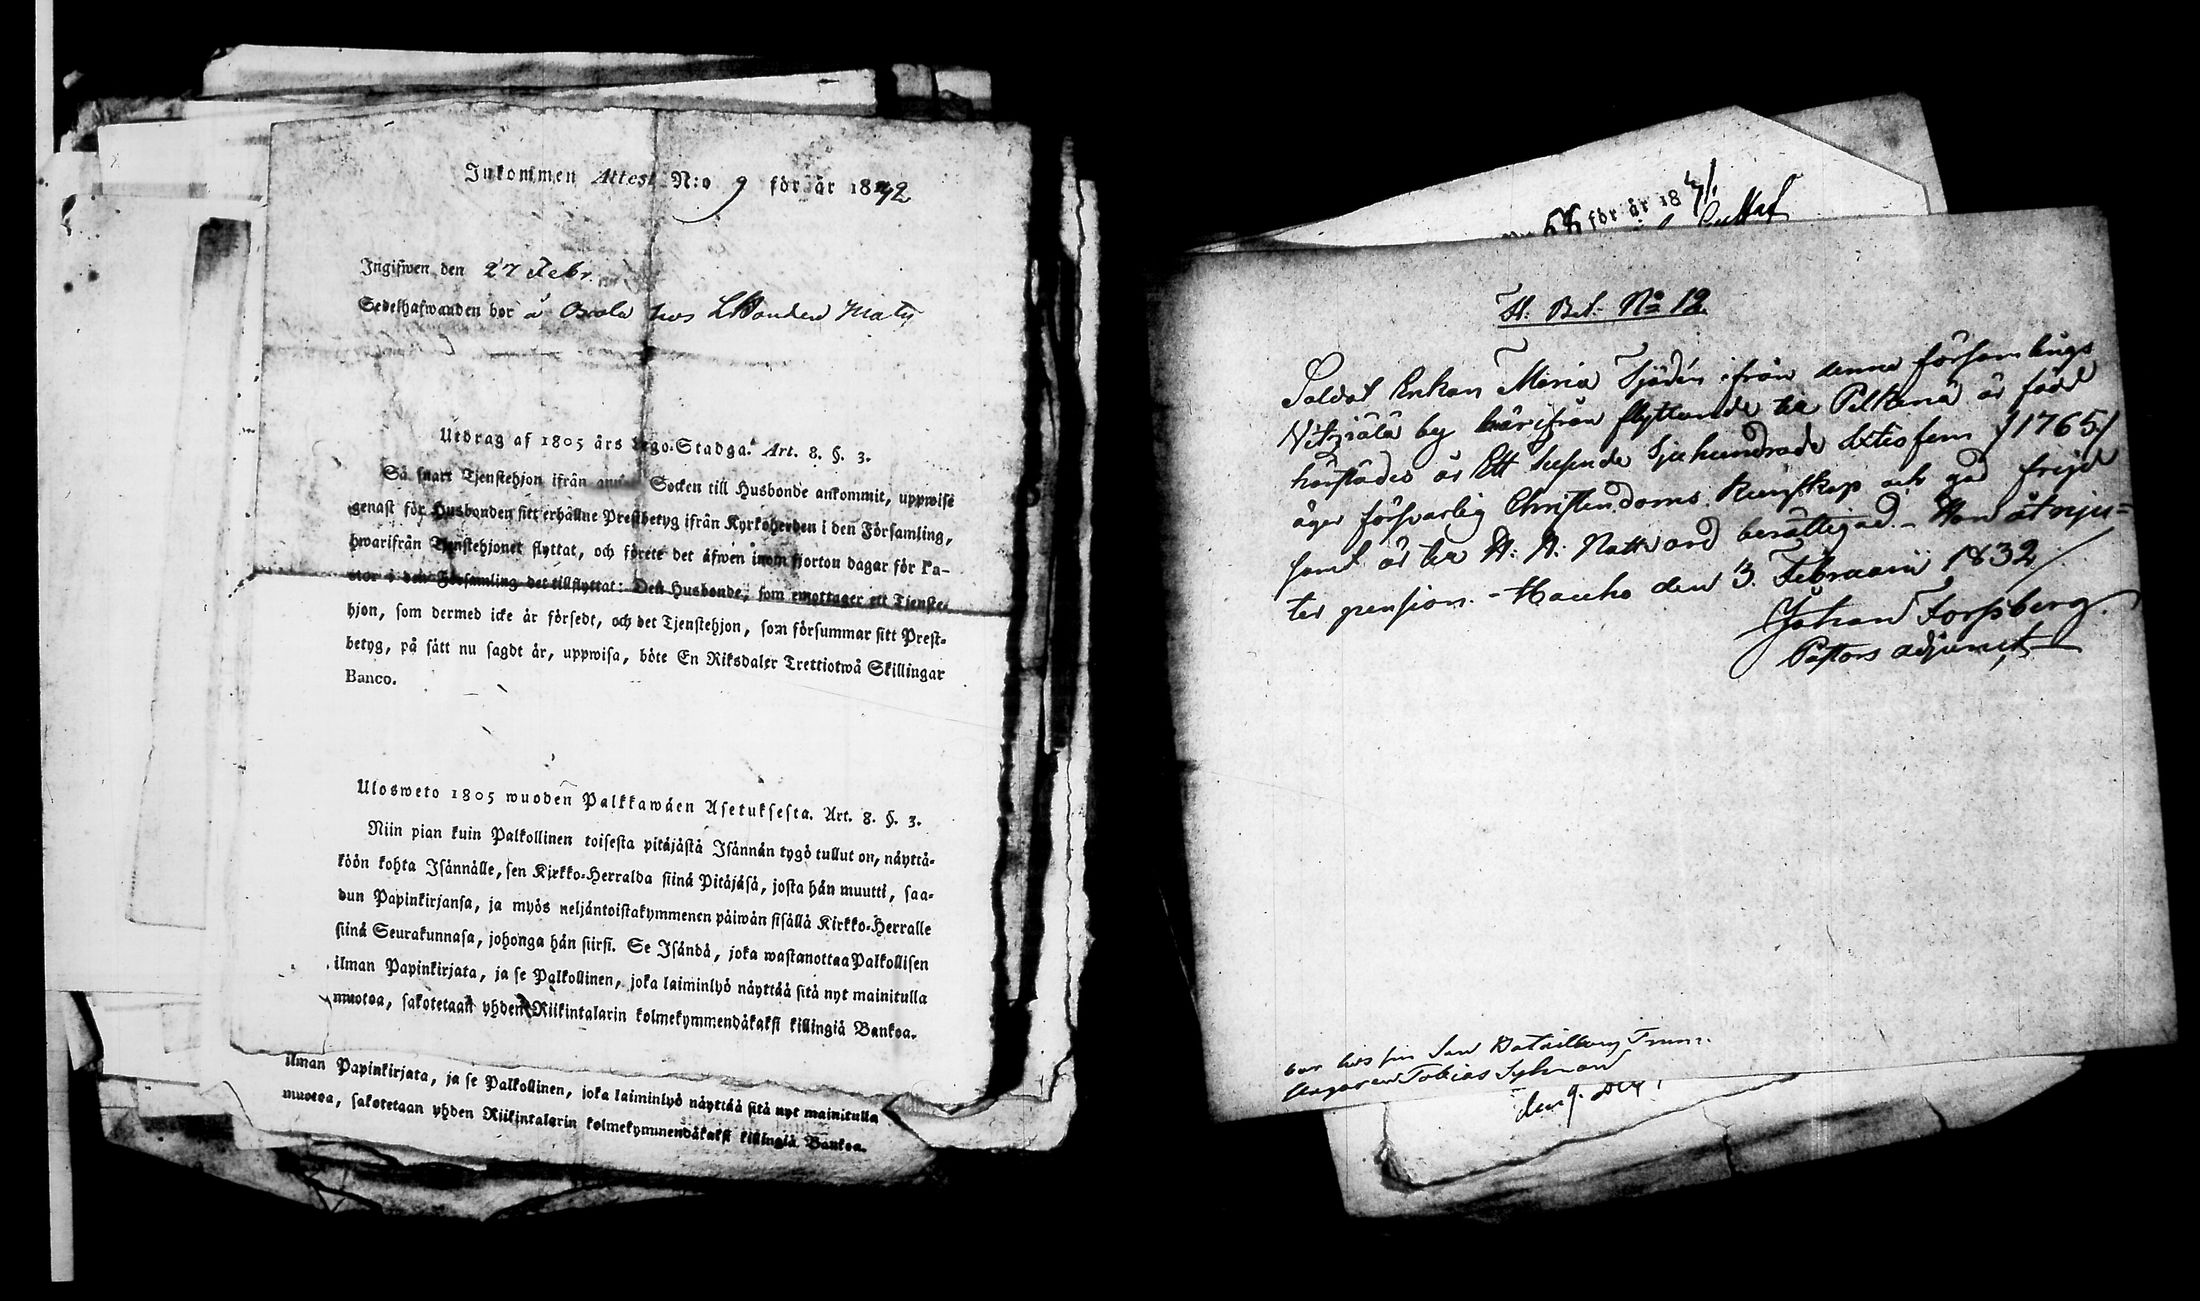 Inkommen Attest N:o 9 för år 1842
Ingifwen den 27 Febr.
Sedelhafwanden bor å hos
Utdrag af 1805 års Lego-Stadga. Art. 8. §. 3.
Så snart Tjenstehjon ifrån annan Socken till Husbonde ankommit, uppwise
genast för Husbonden sitt erhållne Prestbetyg ifrån Kyrkoherden i den Församling,
hwarifrån Tjenstehjonet flyttat, och förete det äfwen inom fjorton dagar för Pa-
stor i den Församling det tillflyttat: Den Husbonde, som emottager ett Tjenste-
hjon, som dermed icke är försedt, och det Tjenstehjon, som försummar sitt Prest-
betyg, på sätt nu sagdt är, uppwisa, böte En Riksdaler Trettiotwå Skillingar
Banco.
Ulosweto 1805 wuoden Palkkawäen Asetuksesta. Art. 8. §. 3.
Niin pian kuin Palkollinen toisesta pitäjästä Isännän tygö tullut on, näyttä-
köön kohta Isännälle, sen Kirkko-Herralda siinä Pitäjäsä, josta hän muutti, saa-
dun Papinkirjansa, ja myös neljäntoistakymmenen päiwän sisällä Kirkko-Herralle
siinä Seurakunnasa, johonga hän siirsi. Se Isändä, joka wastanottaa Palkollisen
ilman Papinkirjata, ja se Palkollinen, joka laiminlyö näyttää sitä nyt mainitulla
muotoa, sakotetaan yhden Riikintalarin kolmekymmendäkaksi killingiä Bankoa.
ilman Papinkirjata, ja se Palkollinen, joka laiminlyö näyttää sitä nyt mainitulla
muotoa, sakotetaan yhden Riikintalarin kolmekymmendäkaksi killingiä Bankoa.
för år 18
Fl. Bet. No 12
Soldat Enkan Maria Sjödén ifrån denne församlings
by härifrån flyttande till Pelkene är född
härstädes år Ett tusende Sjuhundrade Sextiofem /1765/
äger försvarlig Christendoms kunskap och god frejd
samt är till H. H. Nattvard berättigad. - Hon åtnju=
ter pension. - Hauho den 3. Februarii 1832
Johan Forssberg.
Pastors adjunct
bor hos sin Son Bataillons
Tobias
den 9.